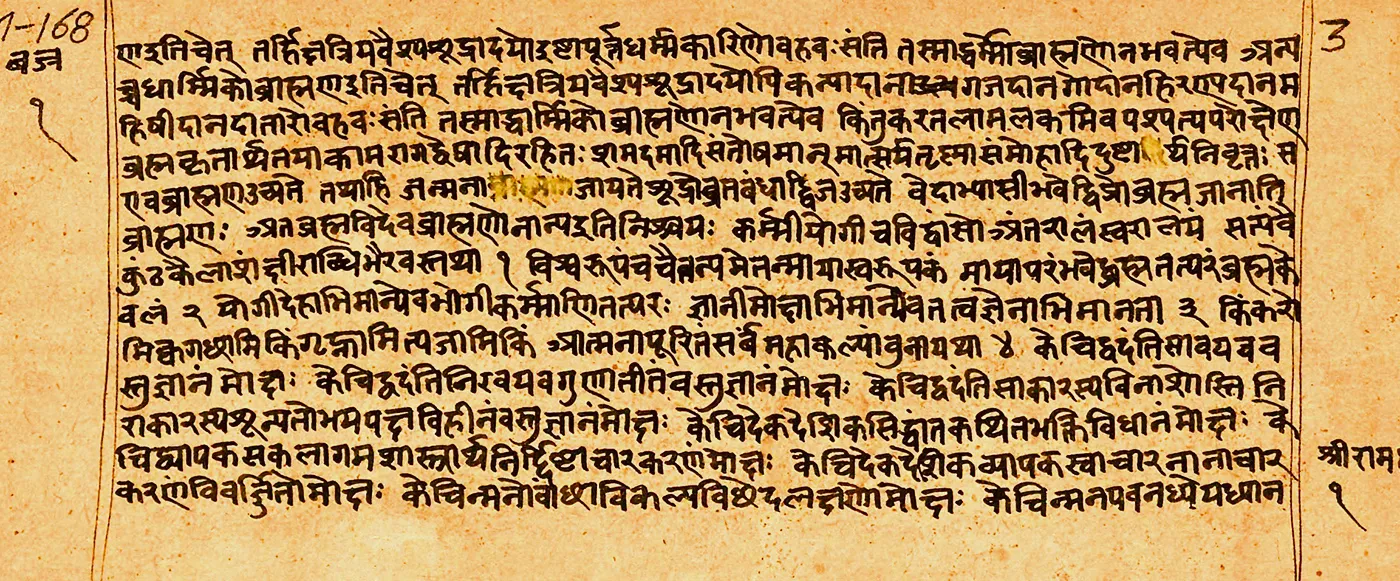 1-168
3
वज्र
१
णइतिचेत् तर्हिक्षत्रियवैश्यशूद्रादयोइष्टापूर्त्तधर्म्मकारिणोवहवःसंति तस्माद्धर्म्मोब्राह्मणोनभवत्येव अन्य
च्चधार्म्मिकोब्राह्मणइतिचेत् तर्हिक्षत्रियवैश्यशूद्रादयोपिकन्यादान गजदानगोदानहिरण्यदानम
हिषीदानदातारोवहवःसंति तस्माद्धार्म्मिकोब्राह्मणोनभवत्येव किंतुकरतलामलकमिवपश्यत्यपरोक्षेण
ब्रह्मकृतार्थतयाकामरागद्वेषादिरहितः शमदमादिसंतोषमान् मात्सर्यतृष्णासंमोहादि निवृत्तः स
एवब्राह्मणउच्यते तथाहि जन्मना जायतेशूद्रोव्रतबंधाद्द्विजउच्यते वेदाभ्यासीभवेद्विप्रोब्रह्मजानाति
ब्राह्मणः अतब्रह्मविदेवब्राह्मणोनान्यइतिनिश्चयः कर्म्मीयोगीचविद्वांसोअंतरालंस्वरालयं सत्यंवै
कुंठकैलाशंक्षीराब्धिभैरवस्तथा १ विश्वरूपंचचैतन्यमेतन्मायास्वरूपकं मायापरंभवेद्ब्रह्मतत्परंब्रह्मके
वलं २ योगीदेहाभिमान्येवभोगीकर्म्मणितत्परः ज्ञानीमोक्षाभिमान्येवतत्वज्ञेनाभिमानता ३ किंकरो
मिक्वगछामिकिंगृह्णामित्यजामिकिं आत्मनापूरितंसर्वंमहाकल्पांवुनायथा ४ केचिद्वदंतिसावयवव
स्तुज्ञानंमोक्षः केचिद्वदंतिनिरवयवगुणातीतंवस्तुज्ञानंमोक्षः केचिद्वदंतिसाकारस्यविनाशोस्ति नि
राकारस्यशून्यतोभयपक्षविहीनंवस्तुज्ञानंमोक्षः केचिदेकदेशिकसिद्धांतकथितभक्तिविधानंमोक्षः के
चिद्व्यापकसकलागमशास्त्रार्थनिर्दिष्टाचारकरणंमोक्षः केचिदेकदेशिकव्यापकस्वाचारनानाचार
करणंविवर्ज्जितोमोक्षः केचिन्मनोवांछाविकल्पविछेदलक्षणोमोक्षः केचिन्मनपवनध्येयध्यान
श्रीराम
१